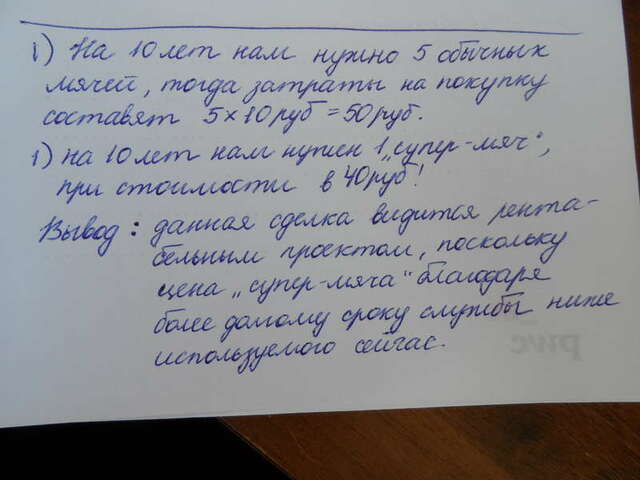 1) На 10 лет нам нужно 5 обычных
мячей, тогда затраты на покупку
составят 5 х 10 руб = 50 руб.
1) на 10 лет нам нужен 1 „супер-мяч“,
при стоимости в 40 руб!
Вывод: данная сделка видится рента-
бельным проектом, поскольку
цена „супер-мяча“ благодаря
более долгому сроку службы ниже
используемого сейчас.
pwc